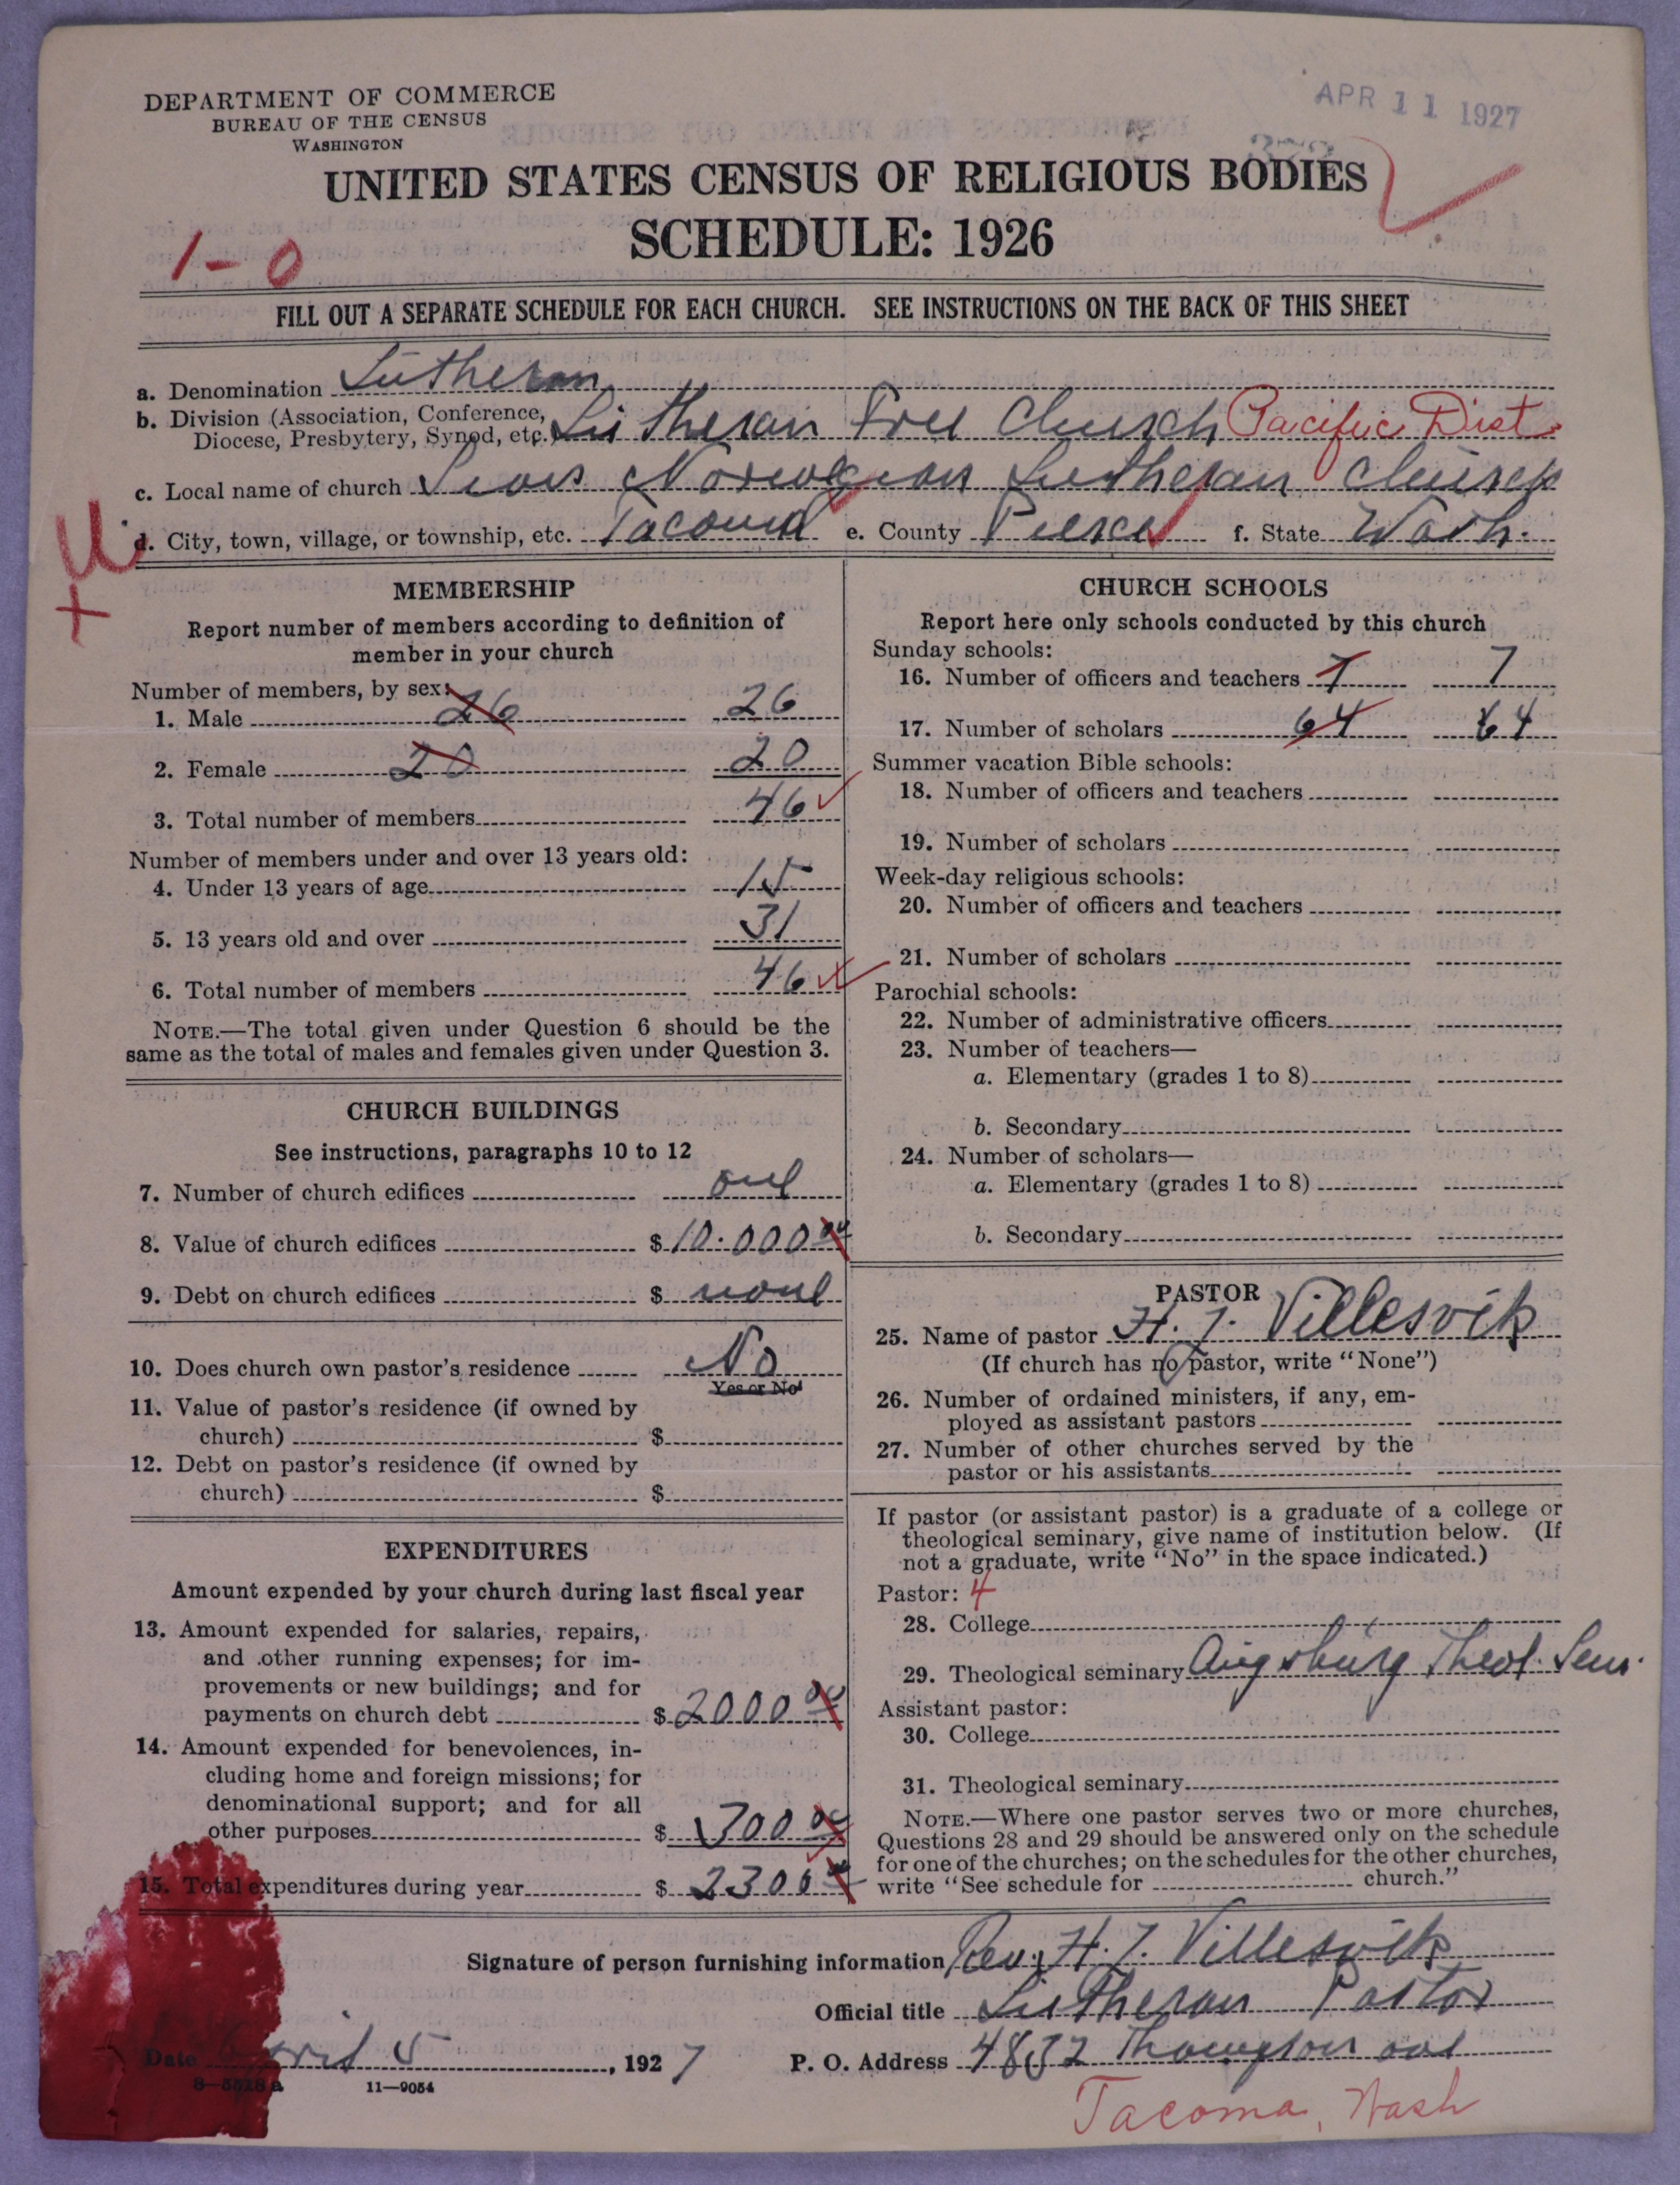 DEPARTMENT OF COMMERCE
BUREAU OF THE CENSUS
WASHINGTON
APR 11 1927
UNITED STATES CENSUS OF RELIGIOUS BODIES
SCHEDULE: 1926
1-0
FILL OUT A SEPARATE SCHEDULE FOR EACH CHURCH. SEE INSTRUCTIONS ON THE BACK OF THIS SHEET
a. Denomination Lutheran
b. Division (Association, Conference, Diocese, Presbytery, Synod, etc. Lutheran Free Church Pacific Dist.
c. Local name of church Norwegian Lutheran Church
d. City, town, village, or township, etc. Tacoma e. County Pierce f. State Wash.
MEMBERSHIP
Report number of members according to definition of
member in your church
Number of members, by sex:
1. Male 26 26
2. Female 20 20
3. Total number of members 46
Number of members under and over 13 years old:
4. Under 13 years of age 15
5. 13 years old and over 31
6. Total number of members 46
NOTE.—The total given under Question 6 should be the
same as the total of males and females given under Question 3.
CHURCH BUILDINGS
See instructions, paragraphs 10 to 12
7. Number of church edifices one
8. Value of church edifices $10.000 00
9. Debt on church edifices $ none
10. Does church own pastor's residence No
Yes or No
11. Value of pastor's residence (if owned by
church) $
12. Debt on pastor's residence (if owned by
church) $
EXPENDITURES
Amount expended by your church during last fiscal year
13. Amount expended for salaries, repairs,
and other running expenses; for im-
provements or new buildings; and for
payments on church debt $2000 00
14. Amount expended for benevolences, in-
cluding home and foreign missions; for
denominational support; and for all
other purposes $ 300 00
15. Total expenditures during year $ 2300 00
CHURCH SCHOOLS
Report here only schools conducted by this church
Sunday schools:
16. Number of officers and teachers 7 7
17. Number of scholars 64 64
Summer vacation Bible schools:
18. Number of officers and teachers
19. Number of scholars
Week-day religious schools:
20. Number of officers and teachers
21. Number of scholars
Parochial schools:
22. Number of administrative officers
23. Number of teachers—
a. Elementary (grades 1 to 8)
b. Secondary
24. Number of scholars—
a. Elementary (grades 1 to 8)
b. Secondary
PASTOR
25. Name of pastor H. J. Villesvik
(If church has no pastor, write "None")
26. Number of ordained ministers, if any, em-
ployed as assistant pastors
27. Number of other churches served by the
pastor or his assistants
If pastor (or assistant pastor) is a graduate of a college or
theological seminary, give name of institution below. (If
not a graduate, write "No" in the space indicated.)
Pastor: 4
28. College
29. Theological seminary Augsburg Theol. Sem.
Assistant pastor:
30. College
31. Theological seminary
NOTE.—Where one pastor serves two or more churches,
Questions 28 and 29 should be answered only on the schedule
for one of the churches; on the schedules for the other churches,
write "See schedule for church."
Signature of person furnishing information Rev. H. J. Villesvik
Official title Lutheran Pastor
Date April 5, 1927 P. O. Address 4832 Thompson ave
8—5518 a 11—9054
Tacoma, Wash